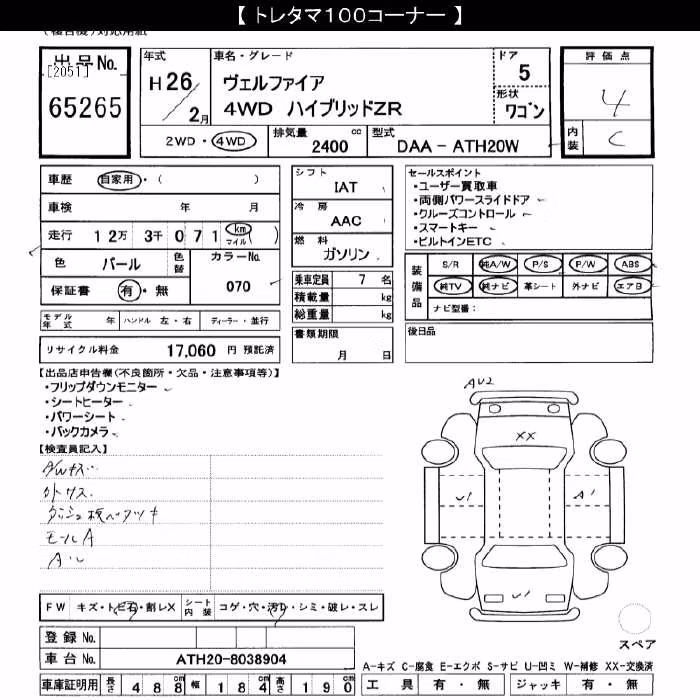 【 トレタマ100コーナー 】
(複合機)対応用紙
出品No.
[2051]
65265
年式
H26/2月
車名・グレード
ヴェルファイア
4WD ハイブリッドZR
ドア
5
形状
ワゴン
評価点
4
内装
C
2WD・4WD
排気量 2400 cc
型式 DAA-ATH20W
車歴 自家用・( )
車検 年 月
走行 12万3千071 km マイル ( )
色 パール 色替 カラーNo. 070
保証書 有・無
シフト
IAT
冷房
AAC
燃料
ガソリン
乗車定員 7 名
積載量 kg
総重量 kg
書類期限
月 日
セールスポイント
・ユーザー買取車
・両側パワースライドドア
・クルーズコントロール
・スマートキー
・ビルトインETC
装備品
S/R 純A/W P/S P/W ABS
純TV 純ナビ 革シート 外ナビ エアB
ナビ型番:
後日品
モデル年式 年 ハンドル 左・右 ディーラー・並行
リサイクル料金 17,060 円 預託済
【出品店申告欄(不良箇所・欠品・注意事項等)】
・フリップダウンモニター
・シートヒーター
・パワーシート
・バックカメラ
【検査員記入】
モールA
AU2
XX
U1
A1
U1
FW キズ・トビ石・割レX シート内装 コゲ・穴・汚レ・シミ・破レ・スレ
登録No.
車台No. ATH20-8038904
車庫証明用 長さ 488cm 幅 184cm 高さ 190cm
スペア
A-キズ C-腐食 E-エクボ S-サビ U-凹ミ W-補修 XX-交換済
工具 有・無 ジャッキ 有・無